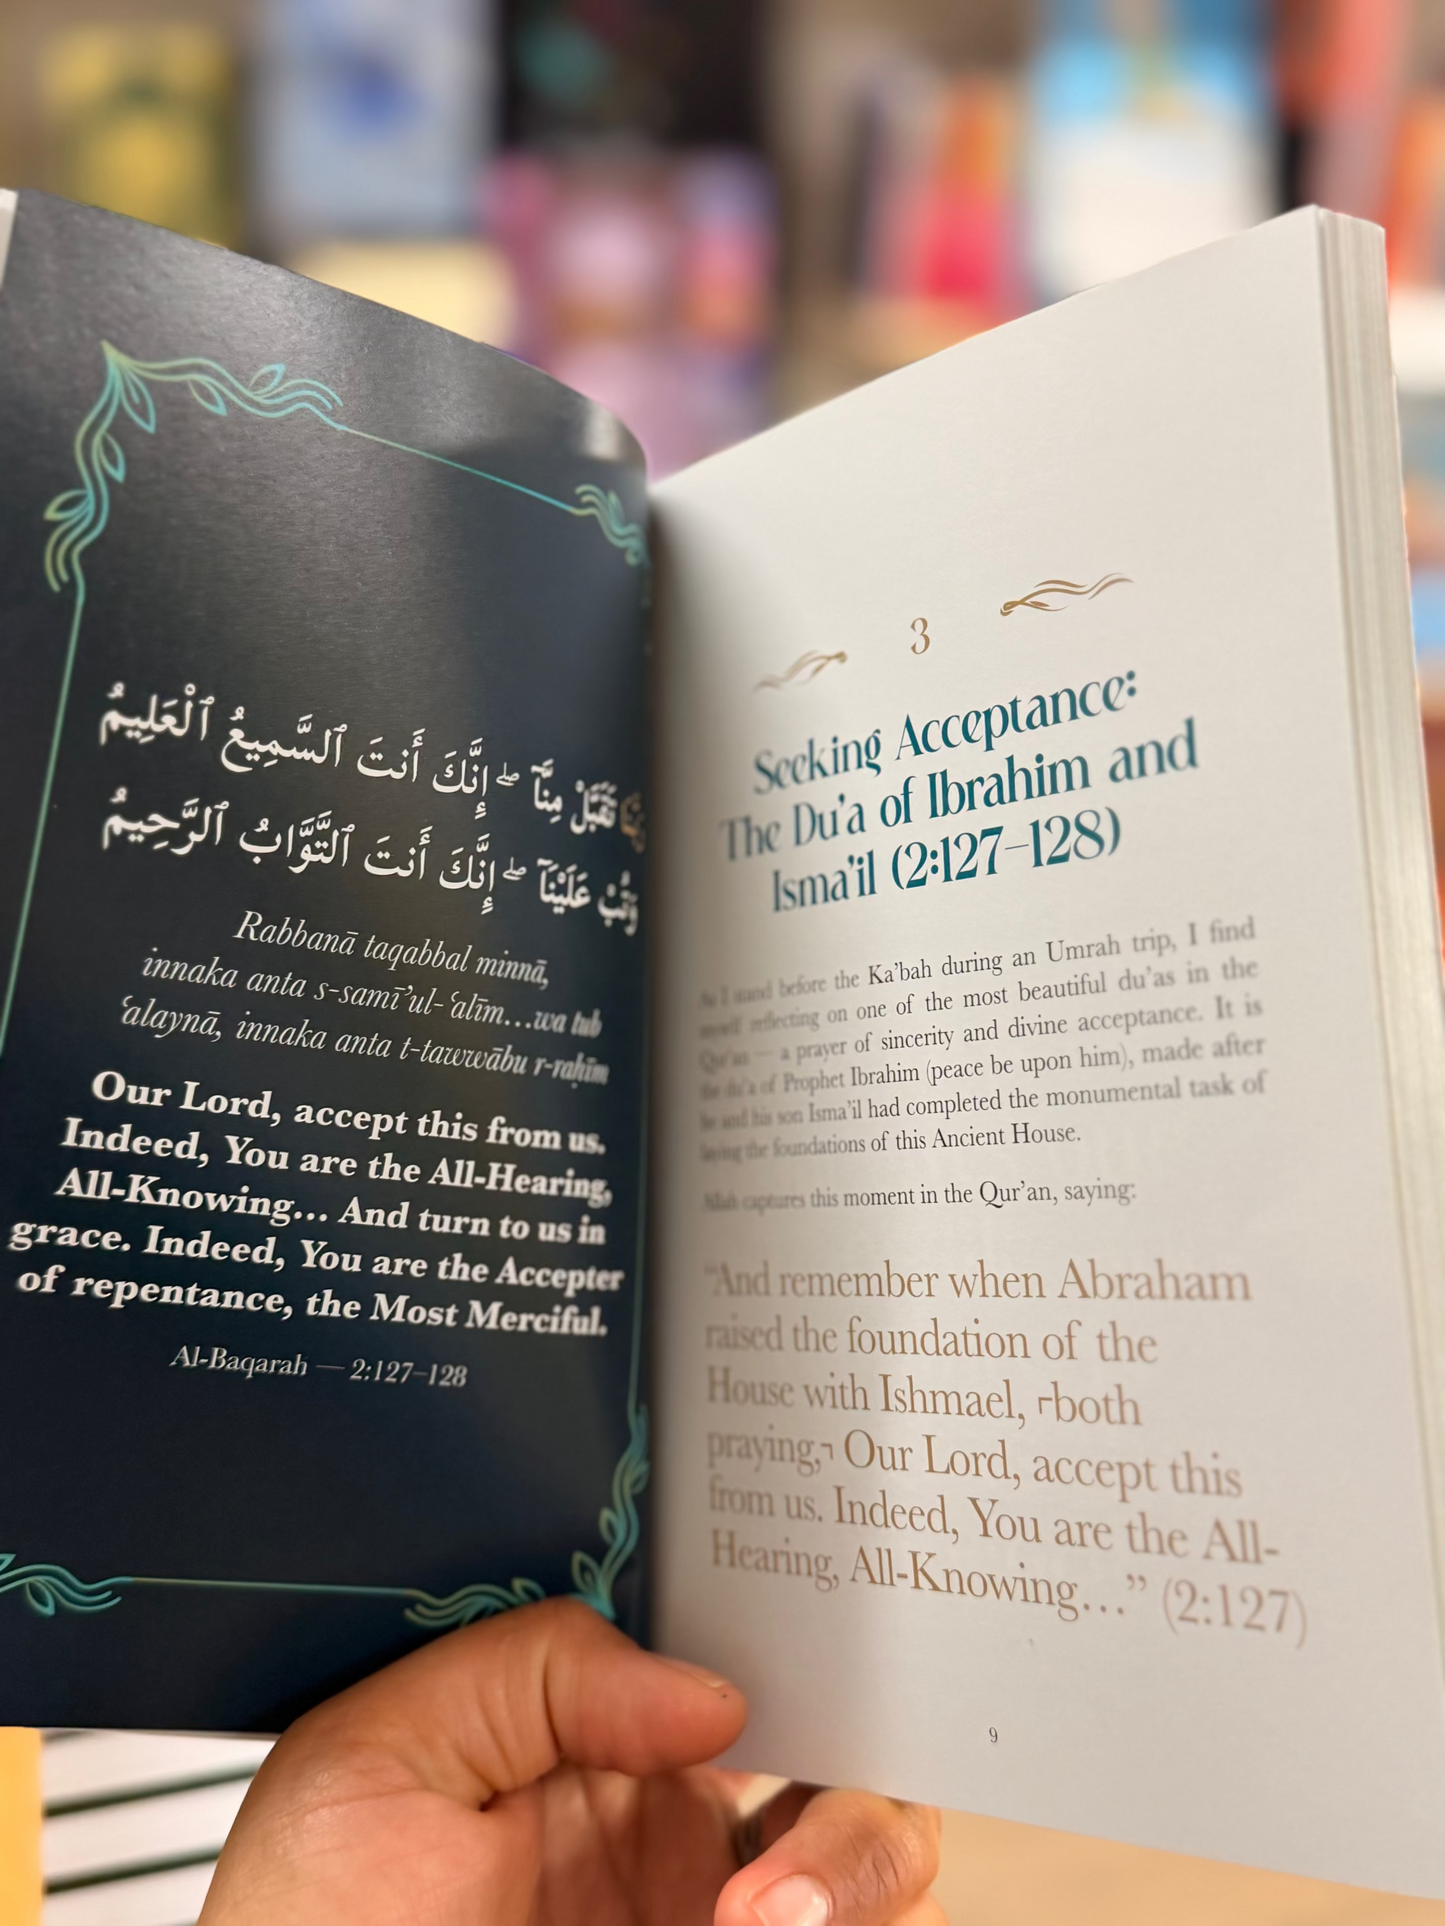 رَبَّنَا تَقَبَّلْ مِنَّآ ۖ إِنَّكَ أَنتَ ٱلسَّمِيعُ ٱلْعَلِيمُ
وَتُبْ عَلَيْنَآ ۖ إِنَّكَ أَنتَ ٱلتَّوَّابُ ٱلرَّحِيمُ
Rabbanā taqabbal minnā,
innaka anta s-samī’ul-‘alīm...wa tub
‘alaynā, innaka anta t-tawwābu r-raḥīm
Our Lord, accept this from us.
Indeed, You are the All-Hearing,
All-Knowing... And turn to us in
grace. Indeed, You are the Accepter
of repentance, the Most Merciful.
Al-Baqarah — 2:127–128
3
Seeking Acceptance:
The Du’a of Ibrahim and
Isma’il (2:127–128)
As I stand before the Ka’bah during an Umrah trip, I find
myself reflecting on one of the most beautiful du’as in the
Qur’an — a prayer of sincerity and divine acceptance. It is
the du’a of Prophet Ibrahim (peace be upon him), made after
he and his son Isma’il had completed the monumental task of
laying the foundations of this Ancient House.
Allah captures this moment in the Qur’an, saying:
“And remember when Abraham
raised the foundation of the
House with Ishmael, ⌜both
praying,⌝ Our Lord, accept this
from us. Indeed, You are the All-
Hearing, All-Knowing...” (2:127)
9